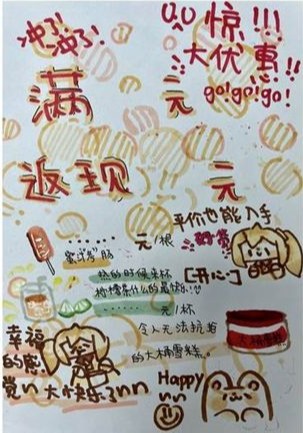 冲了!
冲了!
惊!!!
大优惠!!
go!go!go!
满 元
返现 元
平价也能入手
好货
…… 元/根
蜜汁烤肠
热的时候来杯
柠檬茶什么的最棒!!
[开心~]
…… 元/杯
令人无法抗拒
的大桶雪糕。
大桶雪糕
幸福
的感
觉nn
大快乐了nn
Happy
nn